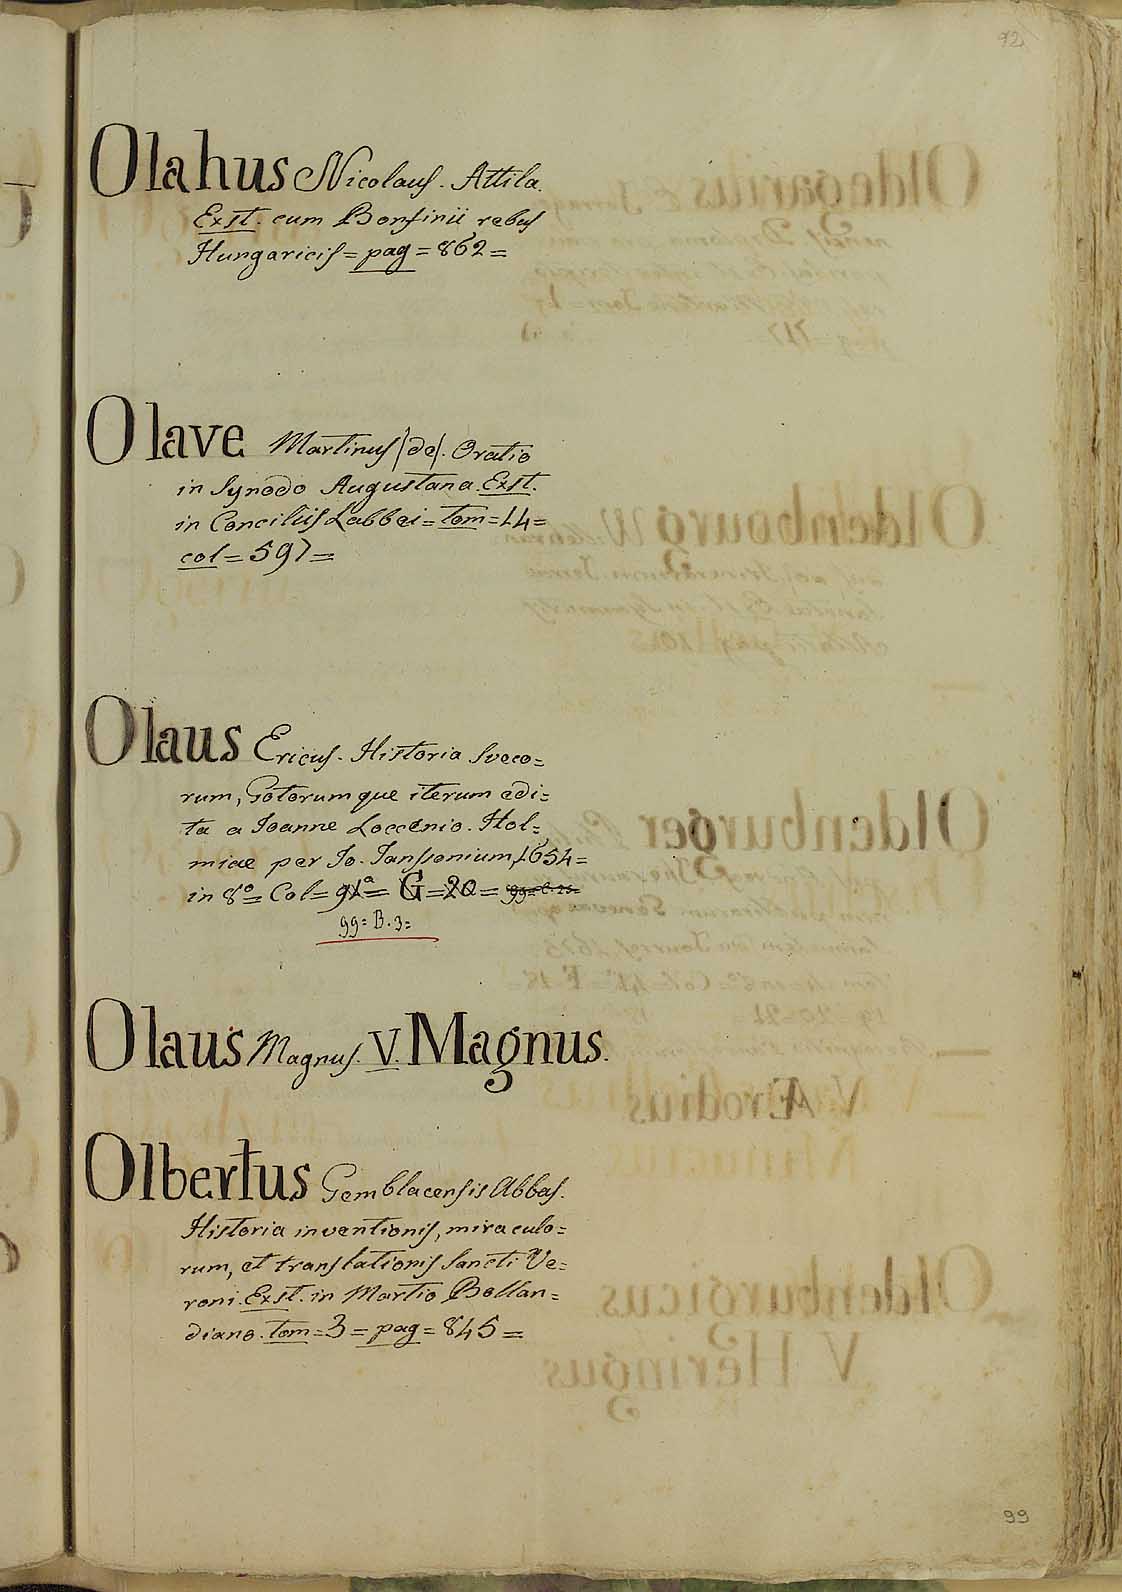 92
Olahus Nicolaus. Attila.
Exst. cum Bonfinii rebus
Hungaricis = pag = 862 =
Olave Martinus (de). Oratio
in Synodo Augustana. Exst.
in Conciliis Labbei = tom = 14 =
col = 597 =
Olaus Ericus. Historia Sveco=
rum, Gotorumque iterum edi=
ta a Joanne Loccenio. Hol=
miae per Jo. Janssonium, 1654 =
in 8° = Col = 91ª = G = 20 =
99 = B. 3 =
Olaus Magnus. V. Magnus.
Olbertus Gemblacensis Abbas.
Historia inventionis, miraculo=
rum, et translationis Sancti Ve=
roni. Exst. in Martio Bollan=
diano. tom = 3 = pag = 845 =
99